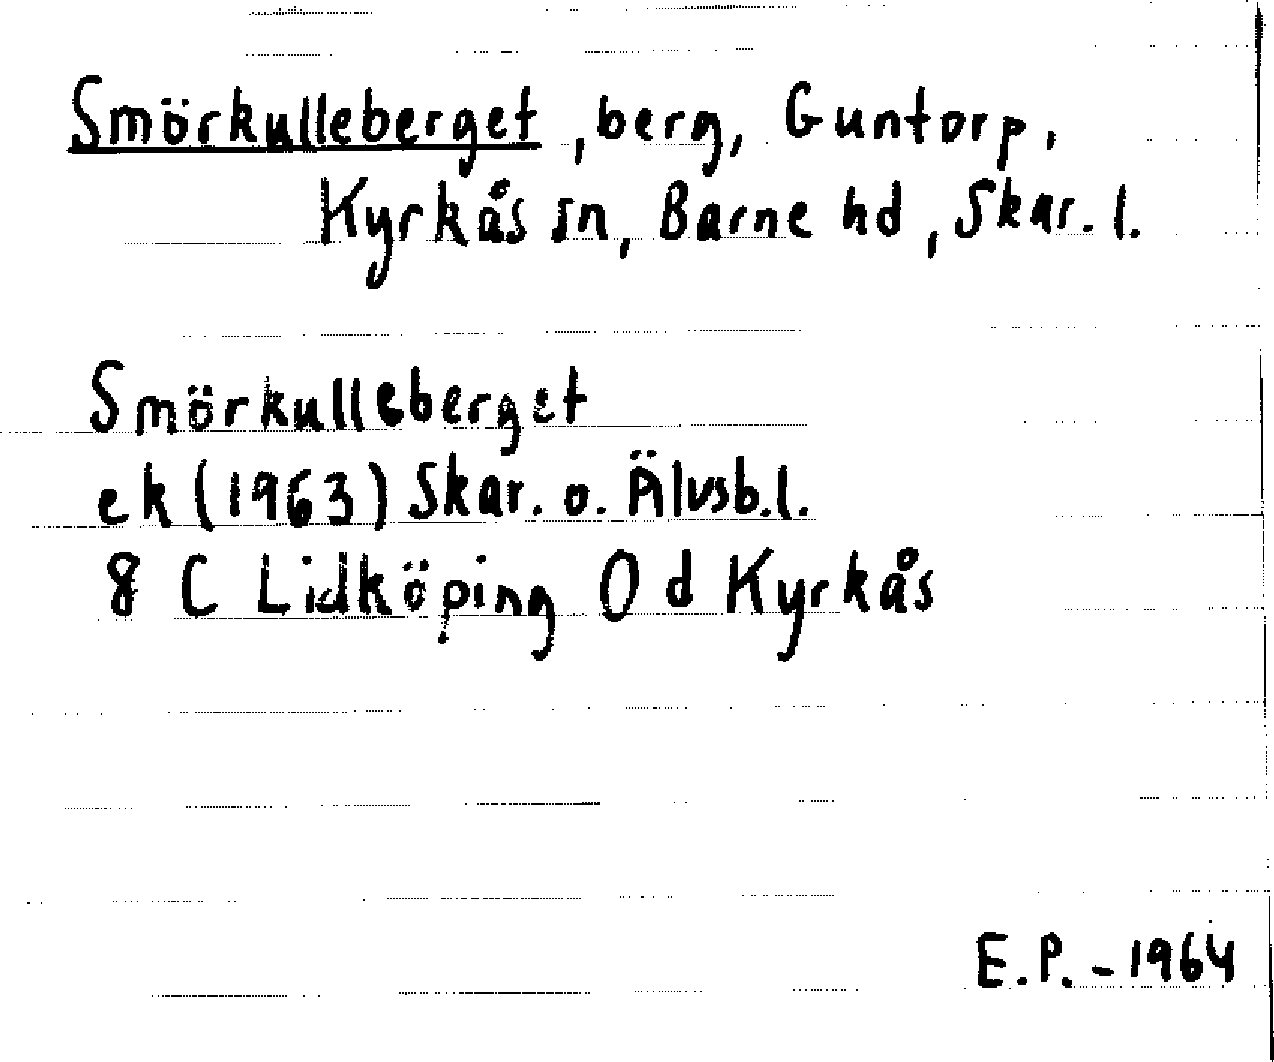 Smörkulleberget, berg, Guntorp,
Kyrkås sn, Barne hd, Skar. l.
Smörkulleberget
ek (1963) Skar. o. Älvsb.l.
8 C Lidköping 0 d Kyrkås
E.P. - 1964